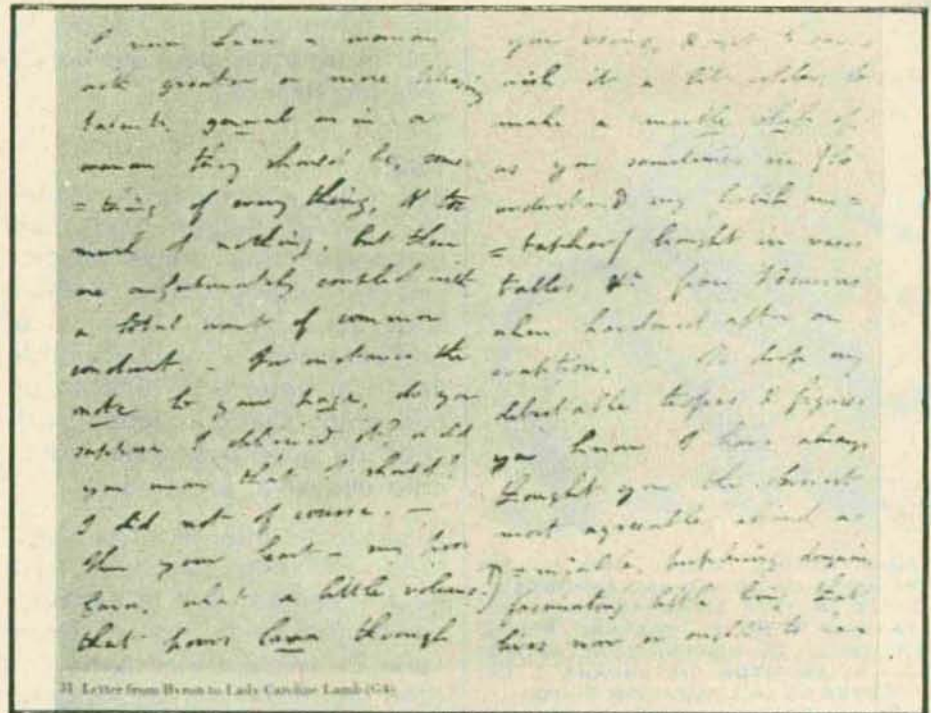 I never knew a woman
with greater or more pleasing
talents, general as in a
woman they should be, some-
=thing of every thing, & too
much of nothing, but these
are unfortunately coupled with
a total want of common
conduct. - For instance the
note to your page, do you
suppose I delivered it? or did
you mean that I should?
I did not of course. -
Then your heart - my poor
Caro, what a little volcano!
that pours lava through
your veins, & yet I cannot
wish it a bit colder, to
make a marble slab of
as you sometimes see (to
understand my foolish me=
=taphor) brought in vases
tables &c from Vesuvius
when hardened after an
eruption. To drop my
detestable tropes & figures
you know I have always
thought you the cleverest
most agreeable, absurd, a=
=miable, perplexing, dangerous
fascinating little being that
lives now or ought to have
31 Letter from Byron to Lady Caroline Lamb (G4)